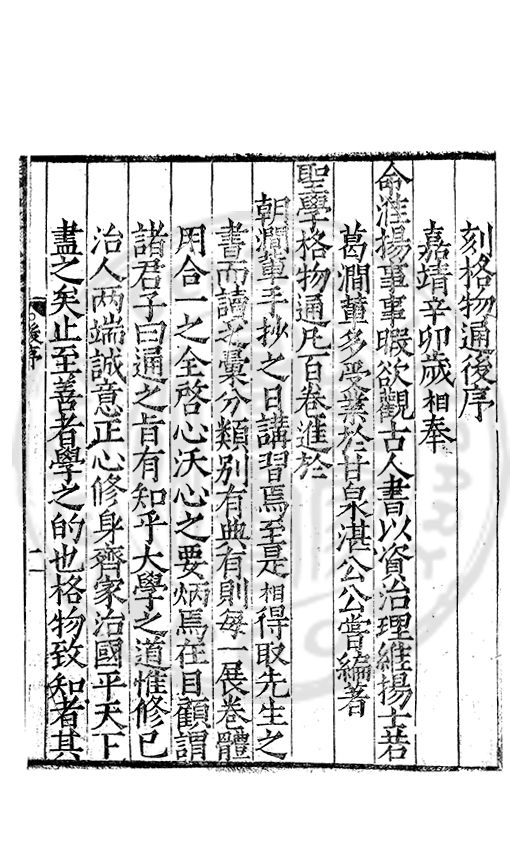 刻格物通後序
嘉靖辛卯歲相奉
命淮揚事事暇欲觀古人書以資治理維揚士若
葛澗董多受業於甘泉湛公公嘗編著
聖學格物通凡百卷進於
朝澗董手抄之日講習焉至是相得取先生之
書而讀之彙分類別有典有則每一展卷體
用合一之全啓心沃心之要炳焉在目顧謂
諸君子曰通之旨有知乎大學之道惟修已
治人两端誠意正心修身齊家治國平天下
盡之矣止至善者學之的也格物致知者其
後序